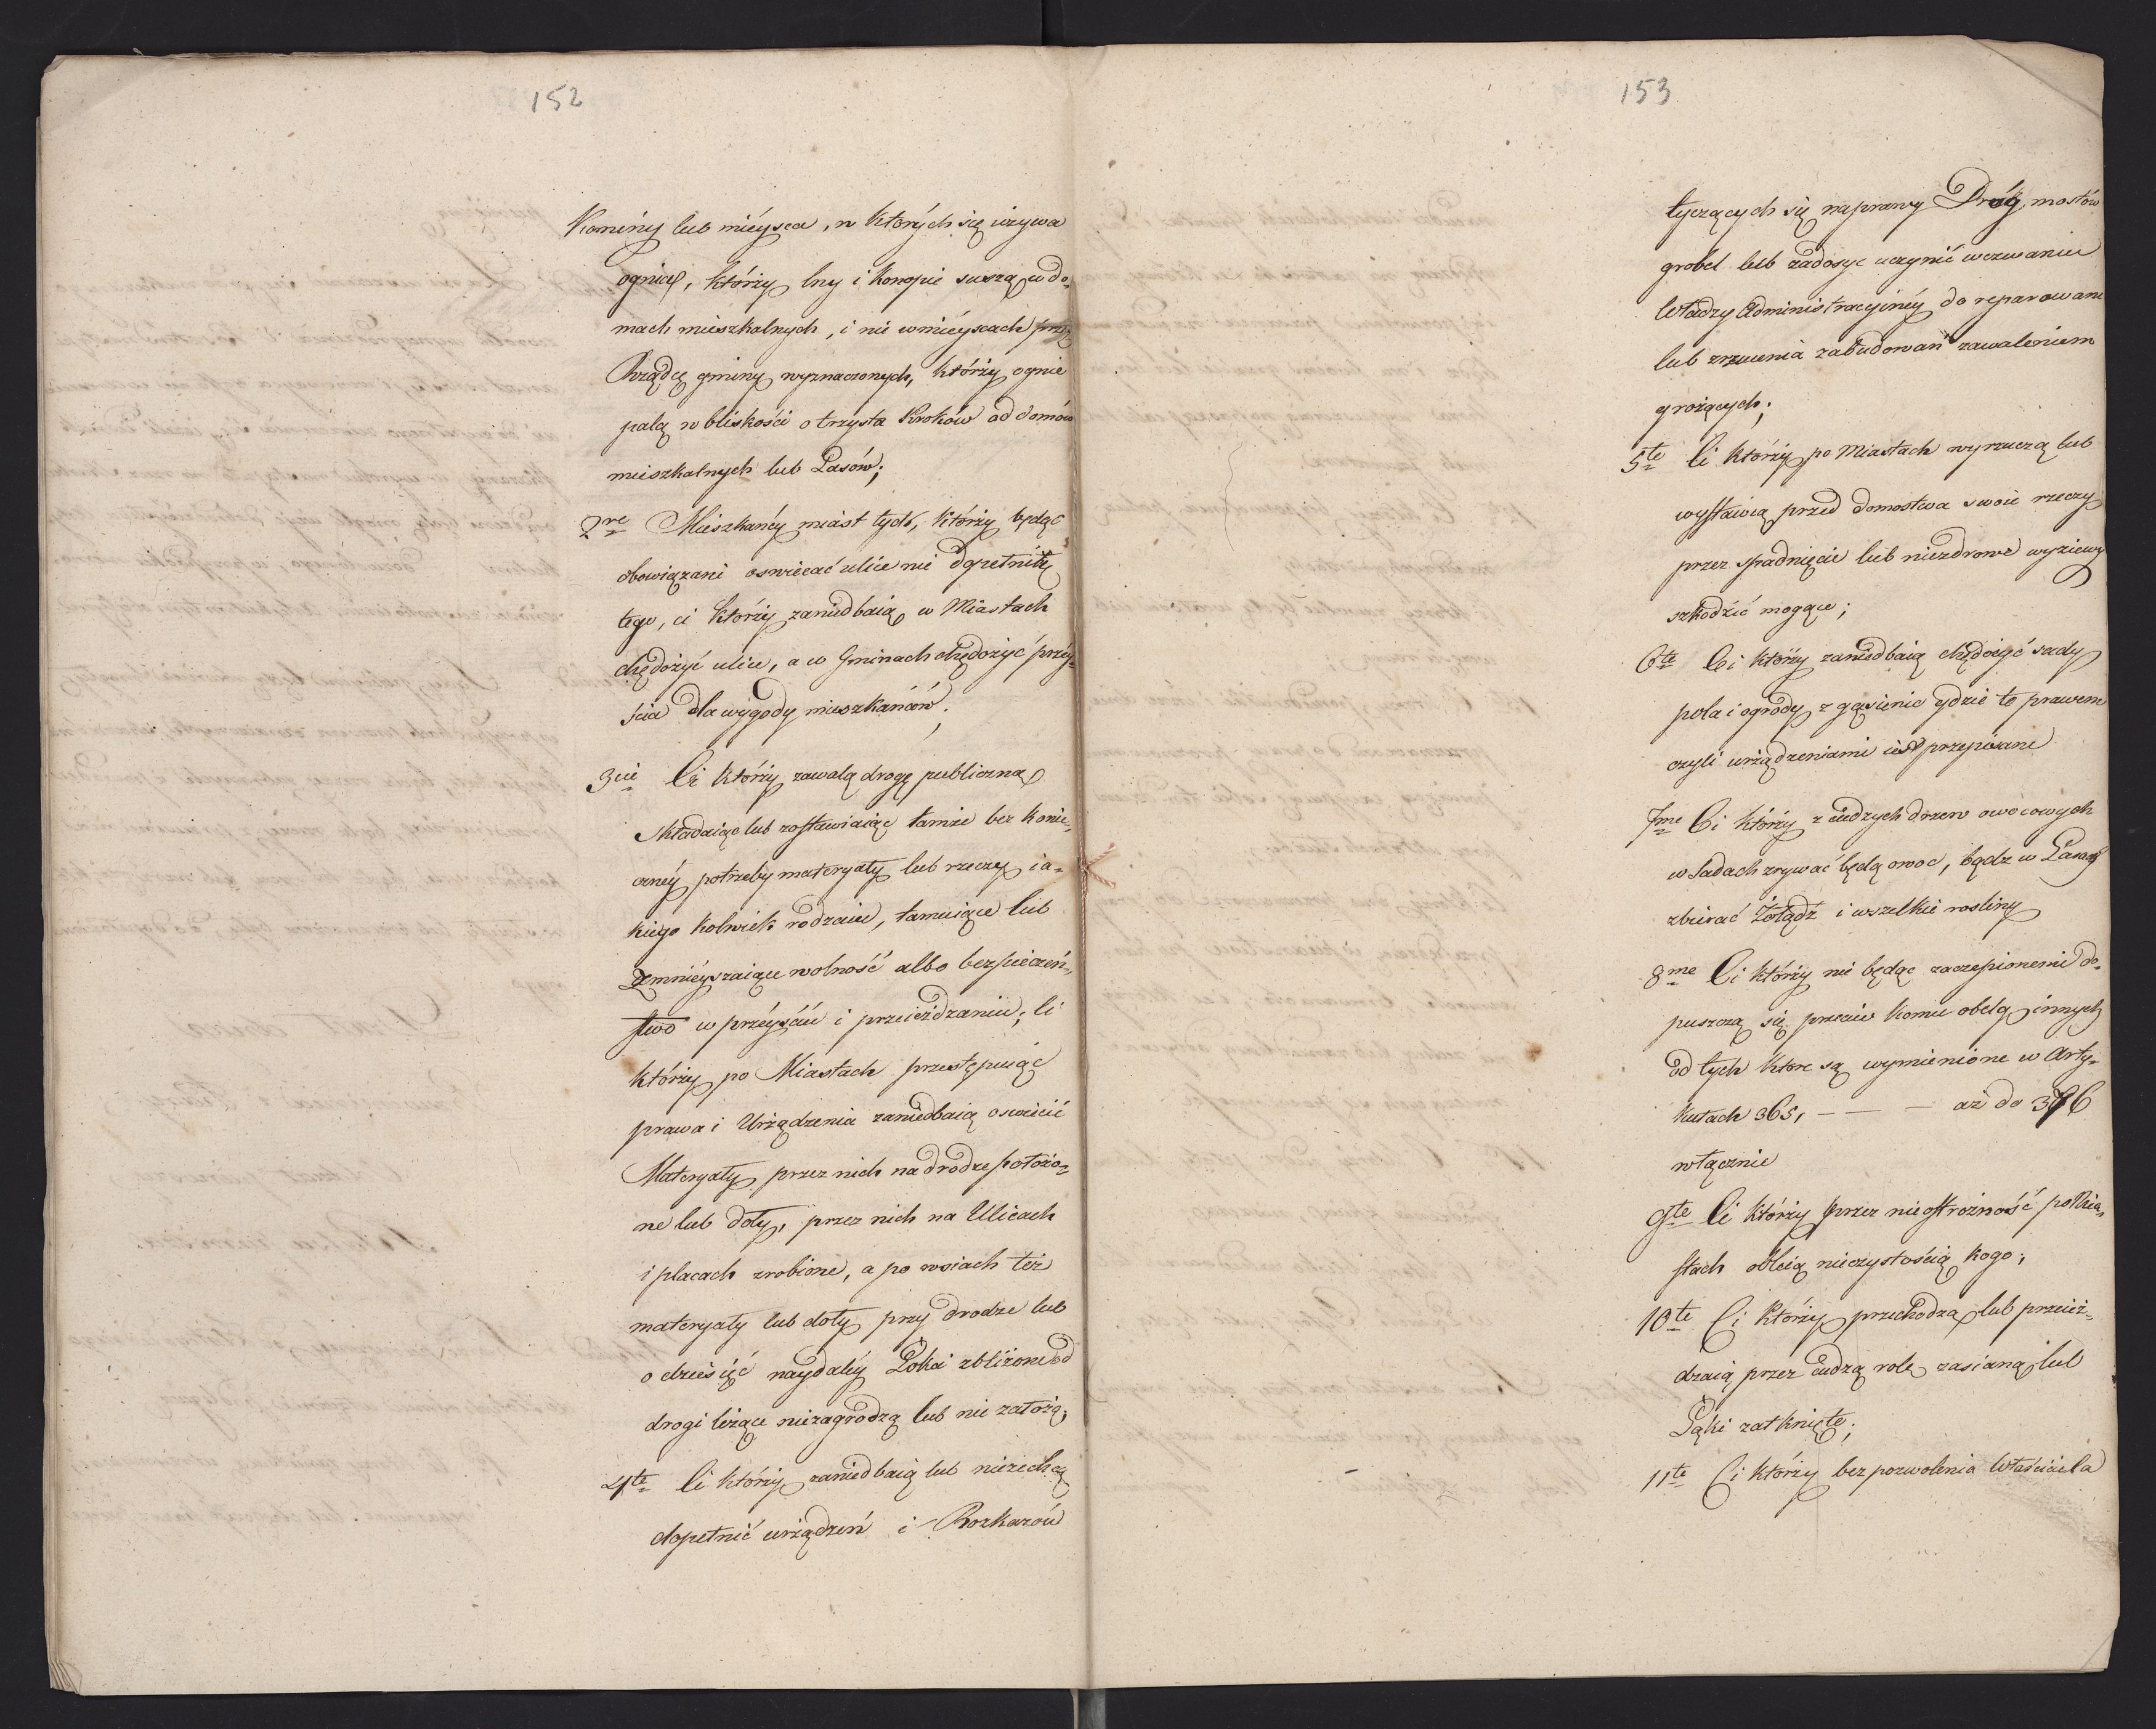 152
Kominy lub mieysca, w których się używa
ognia, którzy lny i Konopie suszą w do,
mach mieszkalnych, i nie w mieyscach przez
Rządcę gminy wyznaczonych, którzy ognie
palą w bliskości o trzysta Kroków od domów
mieszkalnych lub Lasów;
2re Mieszkańcy miast tych, którzy będąc
obowiązani oswiecać ulice nie dopełnią
tego, ci którzy zaniedbaią w Miastach
chędożyć ulice, a w Gminach chędożyć przey,
ścia dla wygody mieszkańców;
3cie Ci którzy zawalą drogę publiczną
składaiąc lub zostawiaiąc tamże bez konie,
czney potrzeby materyały lub rzeczy ia-
kiego kolwiek rodzaiu, tamuiące lub
zmnieyszaiące wolność albo bezpieczeń,
stwo w przeyściu i przeieżdzaniu; Ci
którzy po Miastach przestępuiąc
prawa i Urządzenia zaniedbaią oswiecić
Materyały przez nich na drodze położo-
ne lub doły, przez nich na Ulicach
i placach zrobione, a po wsiach też
materyały lub doły przy drodze lub
o dziesięć naydaley Łokci zbliżone od
drogi leżące niezagrodzą lub nie założą;
4te Ci którzy zaniedbaią lub niezechcą
dopełnić urządzeń i Rozkazów
153
tyczących się naprawy Dróg, mostów
grobel lub zadosyc uczynić wezwaniu
Władzy Administracyiney do reparowania
lub zrzucenia zabudowań zawaleniem
grożących;
5te Ci którzy po Miastach wyrzucą lub
wystawią przed domostwa swoie rzeczy
przez spadnięcie lub niezdrowe wyziewy
szkodzić mogące;
6te Ci którzy zaniedbaią chędożyć sady
pola i ogrody z gąsienic gdzie to prawem
czyli urządzeniami iest przepisane
7me Ci którzy z cudzych drzew owocowych
w Sadach zrywać będą owoc, bądz w Lasach
zbierać Żołądź i wszelkie rosliny
8me Ci którzy nie będąc zaczepionemi do,
puszczą się przeciw komu obelg innych
od tych które są wymienione w Arty-
kułach 365, — — — aż do 376
włącznie
9te Ci którzy przez nieostrożność po Mia,
stach obleią nieczystością kogo;
10te Ci którzy przechodzą lub przeież-
dzaią przez cudzą rolę zasianą lub
Łąki zatknięte;
11te Ci którzy bez pozwolenia Właściciela